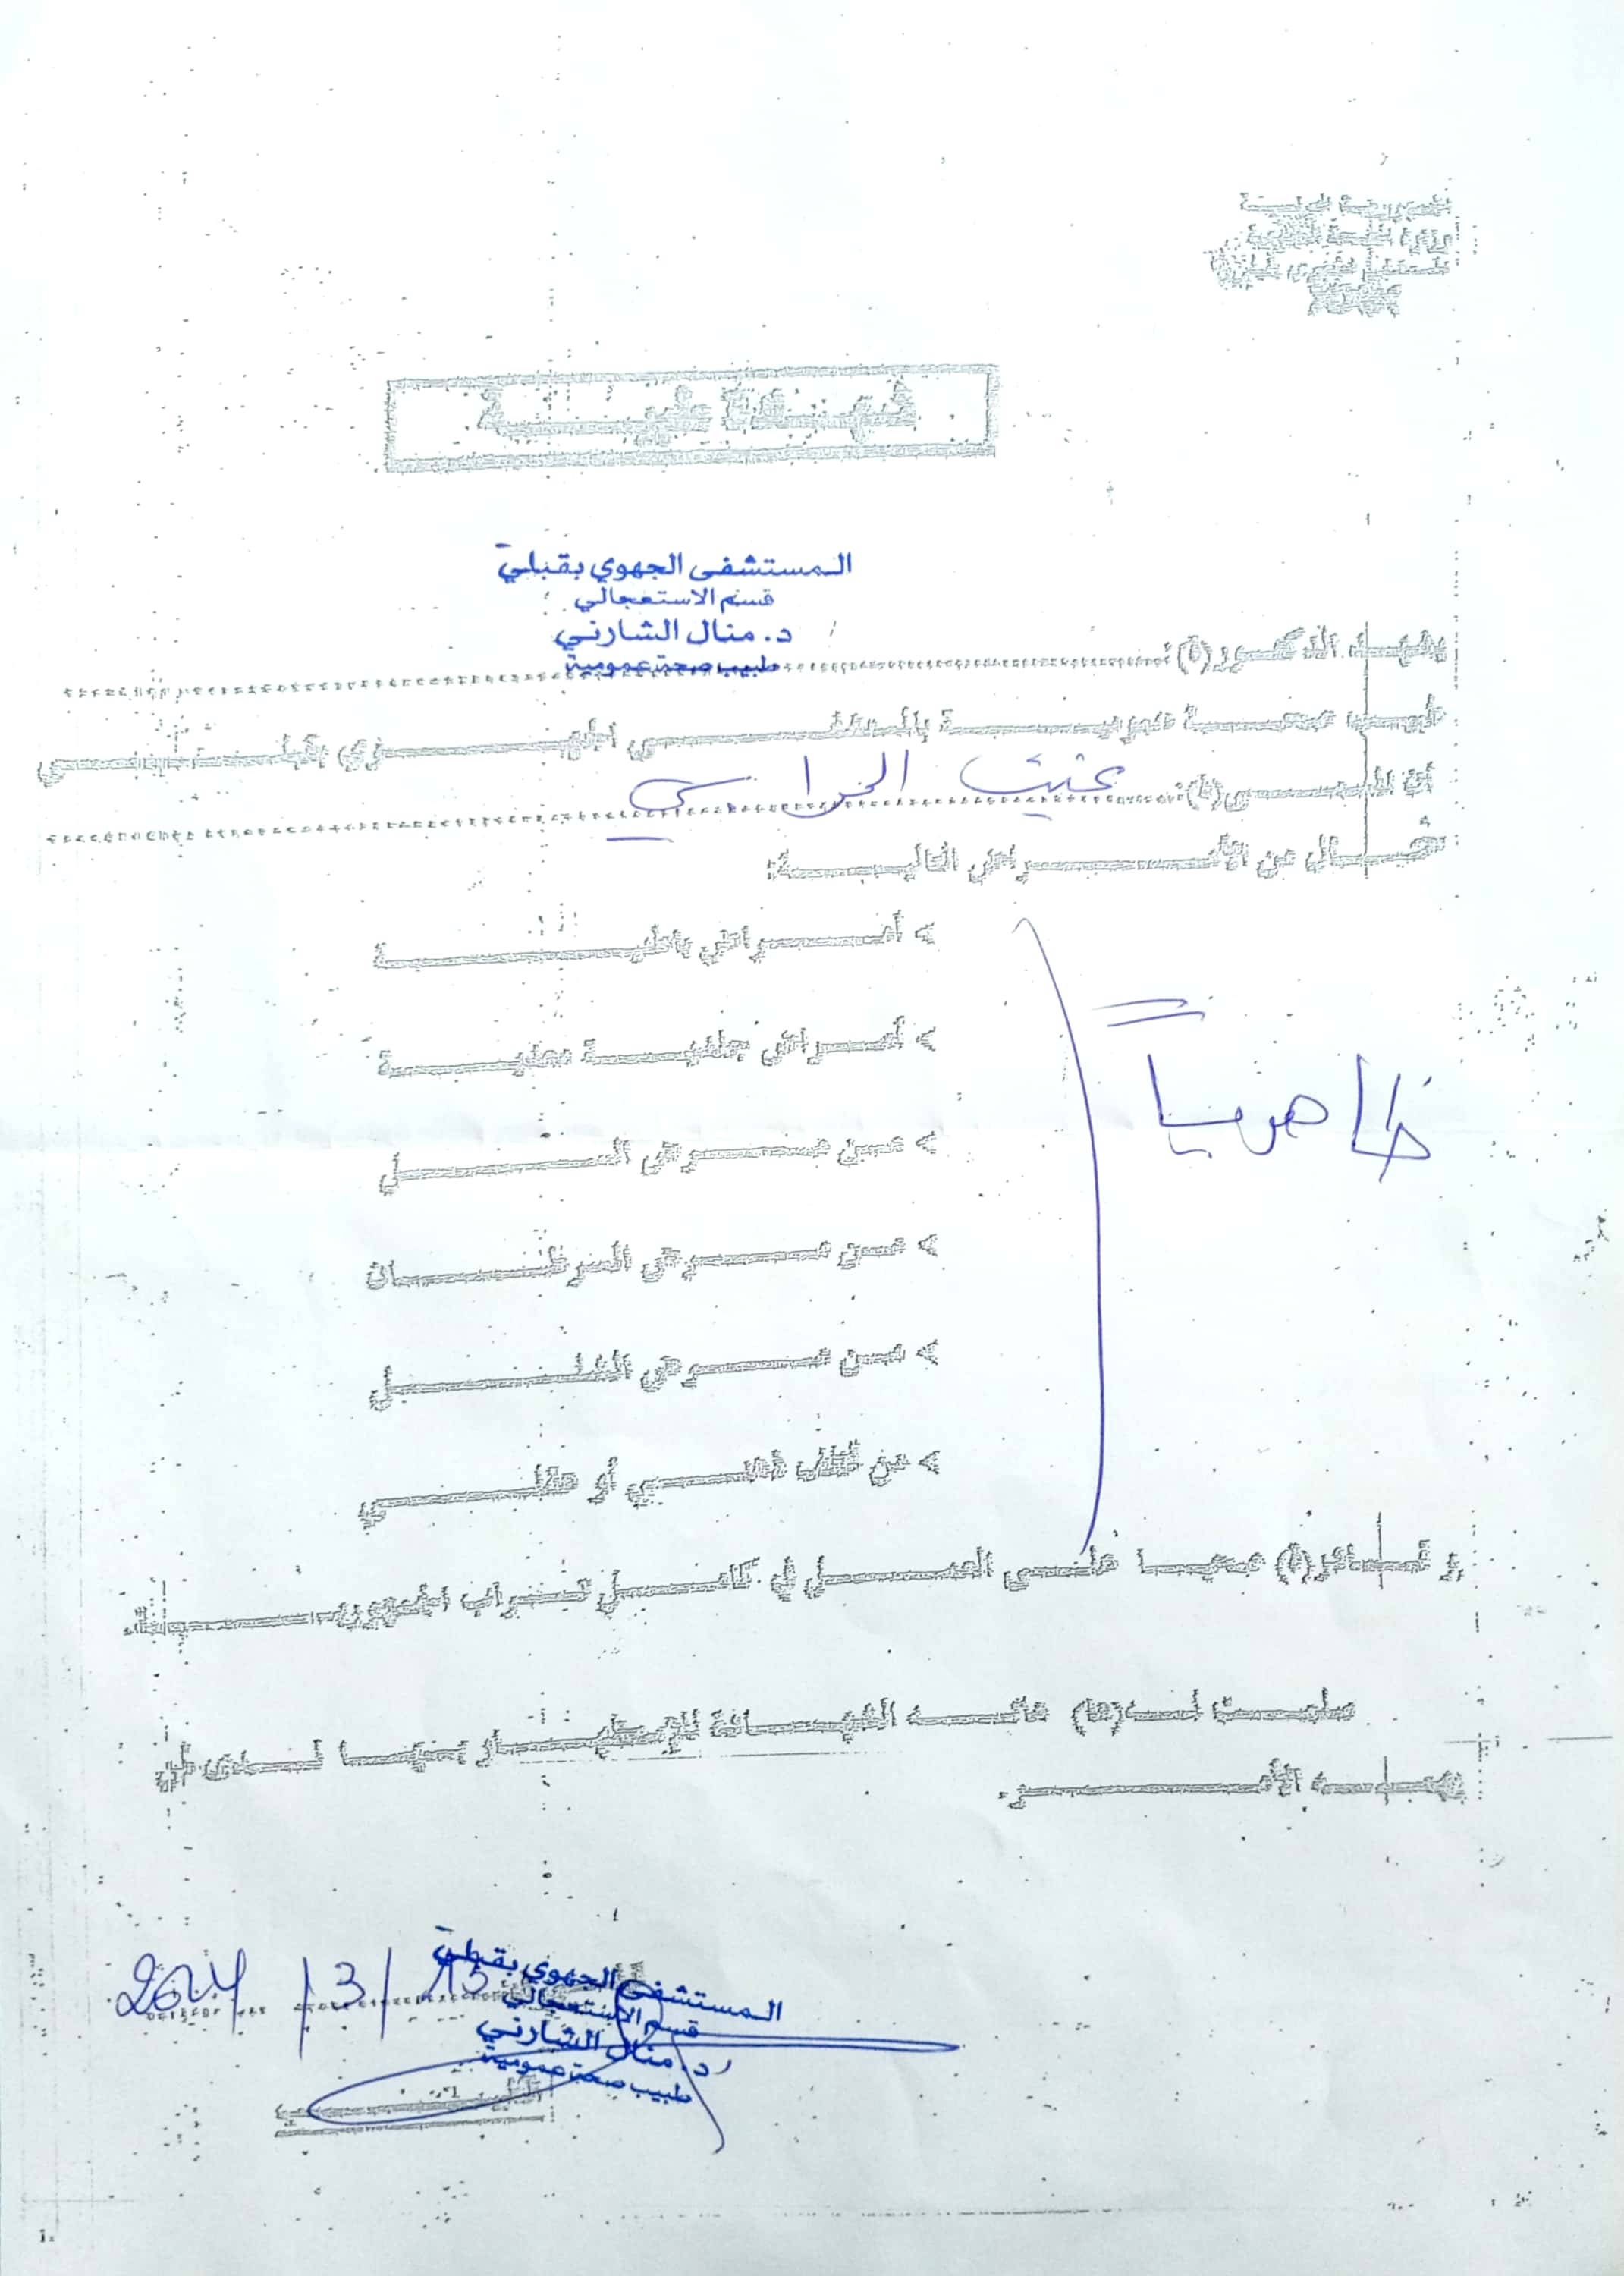 الجمهورية التونسية
وزارة الصحة العمومية
المستشفى الجهوي
شهادة طبية
المستشفى الجهوي بقبلي
قسم الاستعجالي
د. منال الشارني
طبيب صحة عمومية
يشهد الدكتور(ة):
طبيب صحة عمومية بالمستشفى الجهوي بقبلي
أن السيد(ة):
خال من الأمراض التالية:
> أمراض باطنية
> أمراض جلدية معدية
> من مرض السل
> من مرض السرطان
> من مرض الشلل
> من خلل عصبي أو عقلي
ظاهريا
و قادر(ة) صحيا على العمل في كامل تراب الجمهورية.
سلمت له(ها) هذه الشهادة للإستظهار بها لدى من
يهمه الأمر.
2024 / 3 / 13
المستشفى الجهوي بقبلي
قسم الاستعجالي
د. منال الشارني
طبيب صحة عمومية